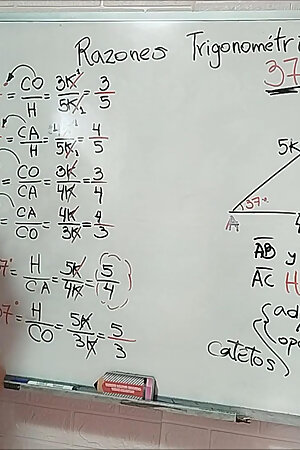 Razones Trigonométri
37
= CO/H = 3K/5K = 3/5
= CA/H = 4K/5K = 4/5
= CO/CA = 3K/4K = 3/4
= CA/CO = 4K/3K = 4/3
7° = H/CA = 5K/4K = (5/4)
7° = H/CO = 5K/3K = 5/3
5K
37°
A
4
AB y
AC H
(ad
opo
catetos